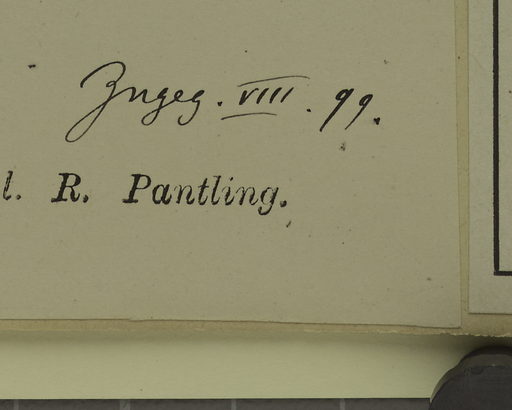 Zugeg. VIII. 99.
l. R. Pantling.